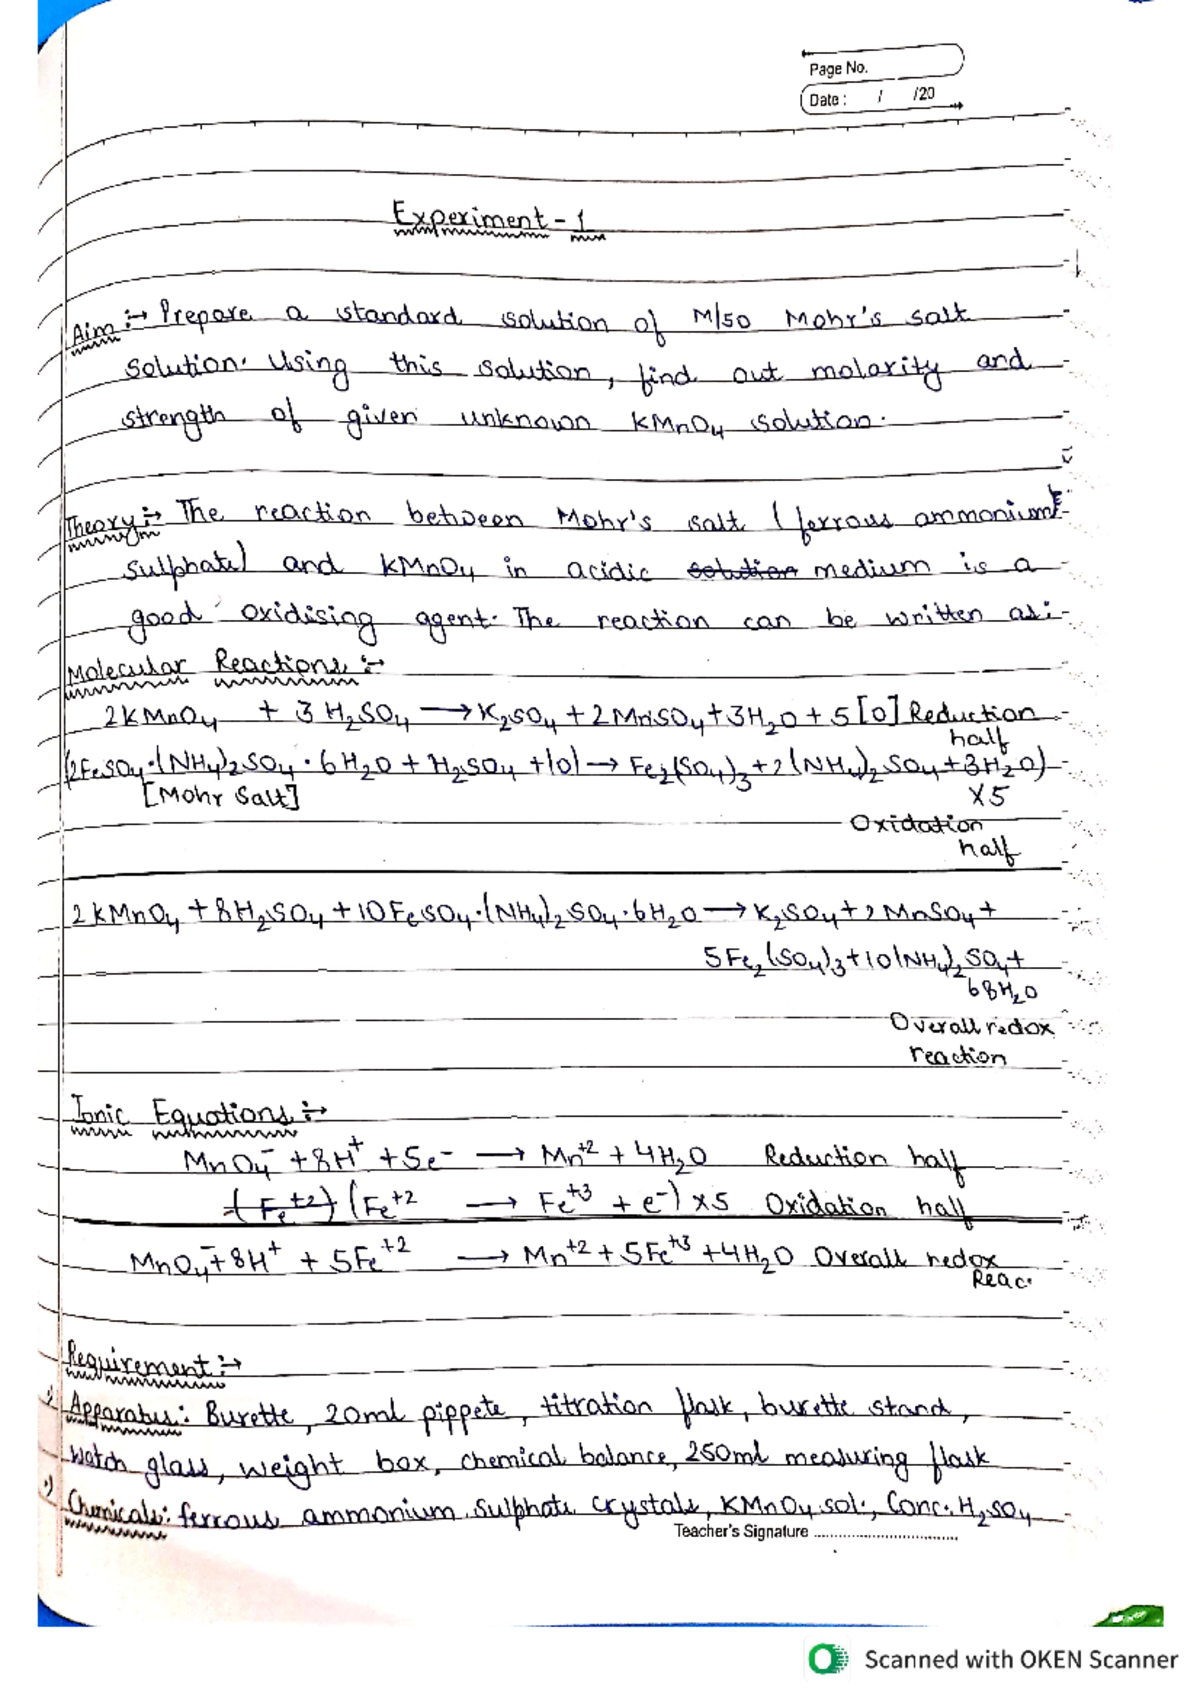 Page No.
Date : / /20
Experiment - 1
Aim :→ Prepare a standard solution of M/50 Mohr's salt
solution. Using this solution, find out molarity and
strength of given unknown KMnO4 solution.
Theory :→ The reaction between Mohr's salt (ferrous ammonium
sulphate) and KMnO4 in acidic solution medium is a
good oxidising agent. The reaction can be written as:-
Molecular Reactions :→
2KMnO4 + 3H2SO4 → K2SO4 + 2MnSO4 + 3H2O + 5[O] Reduction
half
(2FeSO4·(NH4)2SO4·6H2O + H2SO4 + [O] → Fe2(SO4)3 + 2(NH4)2SO4 + 3H2O)
[Mohr Salt] X5
Oxidation
half
2KMnO4 + 8H2SO4 + 10FeSO4·(NH4)2SO4·6H2O → K2SO4 + 2MnSO4 +
5Fe2(SO4)3 + 10(NH4)2SO4 +
68H2O
Overall redox
reaction
Ionic Equations :→
MnO4- + 8H+ + 5e- → Mn+2 + 4H2O Reduction half
(Fe+2) (Fe+2 → Fe+3 + e-) x5 Oxidation half
MnO4- + 8H+ + 5Fe+2 → Mn+2 + 5Fe+3 + 4H2O Overall redox
Reac.
Requirement :→
Apparatus: Burette, 20ml pippete, titration flask, burette stand,
watch glass, weight box, chemical balance, 250ml measuring flask
Chemicals: ferrous ammonium sulphate crystals, KMnO4 sol., Conc. H2SO4
Teacher's Signature ....................................
Scanned with OKEN Scanner